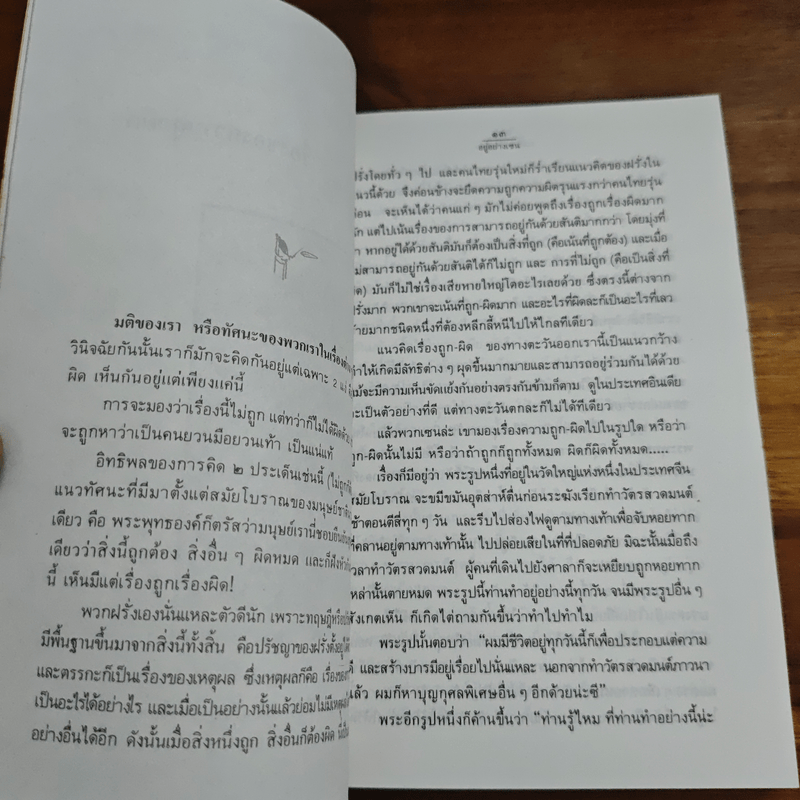 มติของเรา หรือทัศนะของพวกเราในเรื่อง
วินิจฉัยกันนั้นเราก็มักจะคิดกันอยู่แต่เฉพาะ 2
ผิด เห็นกันอยู่แต่เพียงแค่นี้
การจะมองว่าเรื่องนี้ไม่ถูก แต่ทว่าก็ไม่ได้ผิดด้วย
จะถูกหาว่าเป็นคนยวนมือยวนเท้า เป็นแน่แท้
อิทธิพลของการคิด ๒ ประเด็นเช่นนี้
แนวทัศนะที่มีมาตั้งแต่สมัยโบราณของมนุษย์
เดียว คือ พระพุทธองค์ก็ตรัสว่ามนุษย์เรานี่ชอบ
เดียวว่าสิ่งนี้ถูกต้อง สิ่งอื่น ๆ ผิดหมด และก็
นี้ เห็นมีแต่เรื่องถูกเรื่องผิด!
พวกฝรั่งเองนั่นแหละตัวดีนัก เพราะทฤษฎี
มีพื้นฐานขึ้นมาจากสิ่งนี้ทั้งสิ้น คือปรัชญาของฝรั่ง
และตรรกะก็เป็นเรื่องของเหตุผล ซึ่งเหตุผลก็คือ
เป็นอะไรได้อย่างไร และเมื่อเป็นอย่างนั้นแล้วย่อมไม่มี
อย่างอื่นได้อีก ดังนั้นเมื่อสิ่งหนึ่งถูก สิ่งอื่นก็ต้องผิด
๑๓
อยู่อย่างเซน
ฝรั่งโดยทั่ว ๆ ไป และคนไทยรุ่นใหม่ก็ร่ำเรียนแนวคิดของฝรั่งใน
แนวนี้ด้วย จึงค่อนข้างจะยึดความถูกความผิดรุนแรงกว่าคนไทยรุ่น
ก่อน จะเห็นได้ว่าคนแก่ ๆ มักไม่ค่อยพูดถึงเรื่องถูกเรื่องผิดมาก
นัก แต่ไปเน้นเรื่องของการสามารถอยู่กันด้วยสันติมากกว่า โดยมุ่งที่
ว่า หากอยู่ได้ด้วยสันติมันก็ต้องเป็นสิ่งที่ถูก (คือเน้นที่ถูกต้อง) และเมื่อ
ไม่สามารถอยู่กันด้วยสันติได้ก็ไม่ถูก และ การที่ไม่ถูก (คือเป็นสิ่งที่
ผิด) มันก็ไม่ใช่เรื่องเสียหายใหญ่โตอะไรเลยด้วย ซึ่งตรงนี้ต่างจาก
ฝรั่งมาก พวกเขาจะเน้นที่ถูก-ผิดมาก และอะไรที่ผิดละก็เป็นอะไรที่เลว
ร้ายมากชนิดหนึ่งที่ต้องหลีกลี้หนีไปให้ไกลทีเดียว
แนวคิดเรื่องถูก-ผิด ของทางตะวันออกเรานี้เป็นแนวกว้าง
ทำให้เกิดมีลัทธิต่าง ๆ ผุดขึ้นมากมายและสามารถอยู่ร่วมกันได้ด้วย
แม้จะมีความเห็นขัดแย้งกันอย่างตรงกันข้ามก็ตาม ดูในประเทศอินเดีย
จะเป็นตัวอย่างที่ดี แต่ทางตะวันตกละก็ไม่ได้ทีเดียว
แล้วพวกเซนล่ะ เขามองเรื่องความถูก-ผิดไปในรูปใด หรือว่า
ถูก-ผิดนั้นไม่มี หรือว่าถ้าถูกก็ถูกทั้งหมด ผิดก็ผิดทั้งหมด.....
เรื่องก็มีอยู่ว่า พระรูปหนึ่งที่อยู่ในวัดใหญ่แห่งหนึ่งในประเทศจีน
สมัยโบราณ จะขมีขมันอุตส่าห์ตื่นก่อนระฆังเรียกทำวัตรสวดมนต์
เช้าตอนตีสี่ทุก ๆ วัน และรีบไปส่องไฟดูตามทางเท้าเพื่อจับหอยทาก
ที่คลานอยู่ตามทางเท้านั้น ไปปล่อยเสียในที่ที่ปลอดภัย มิฉะนั้นเมื่อถึง
เวลาทำวัตรสวดมนต์ ผู้คนที่เดินไปยังศาลาก็จะเหยียบถูกหอยทาก
เหล่านั้นตายหมด พระรูปนี้ท่านทำอยู่อย่างนี้ทุกวัน จนมีพระรูปอื่น ๆ
สังเกตเห็น ก็เกิดไต่ถามกันขึ้นว่าทำไปทำไม
พระรูปนั้นตอบว่า “ผมมีชีวิตอยู่ทุกวันนี้ก็เพื่อประกอบแต่ความ
ดี และสร้างบารมีอยู่เรื่อยไปนั่นแหละ นอกจากทำวัตรสวดมนต์ภาวนา
แล้ว ผมก็หาบุญกุศลพิเศษอื่น ๆ อีกด้วยน่ะซี”
พระอีกรูปหนึ่งก็ค้านขึ้นว่า “ท่านรู้ไหม ที่ท่านทำอย่างนี้น่ะ